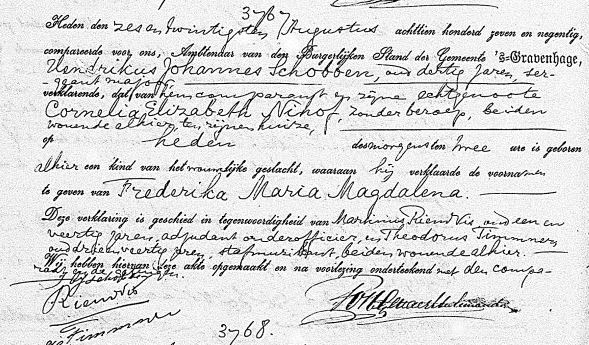 3767
Heden den zes en twintigsten Augustus achttien honderd zeven en negentig,
compareerde voor ons, Ambtenaar van den Burgerlijken Stand der Gemeente 's-Gravenhage,
Hendrikus Johannes Schobben, oud dertig jaren, ser-
geant majoor
verklarende, dat van hem comparant en zijne echtgenoote
Cornelia Elizabeth Nihof, zonder beroep, beiden
wonende alhier, ten zijnen huize,
op heden des morgens ten twee ure is geboren
alhier een kind van het vrouwelijke geslacht, waaraan hij verklaarde de voornamen
te geven van Frederika Maria Magdalena.
Deze verklaring is geschied in tegenwoordigheid van Martinus Riendvis, oud een en
veertig jaren, adjudant onderofficier, en Theodorus Timmner,
oud drie en veertig jaren, stafmuzikant, beiden wonende alhier.
Wij hebben hiervan deze akte opgemaakt en na voorlezing onderteekend met den compa-
rant en de getuigen.
HJ Schobben
Riendvis
3768.